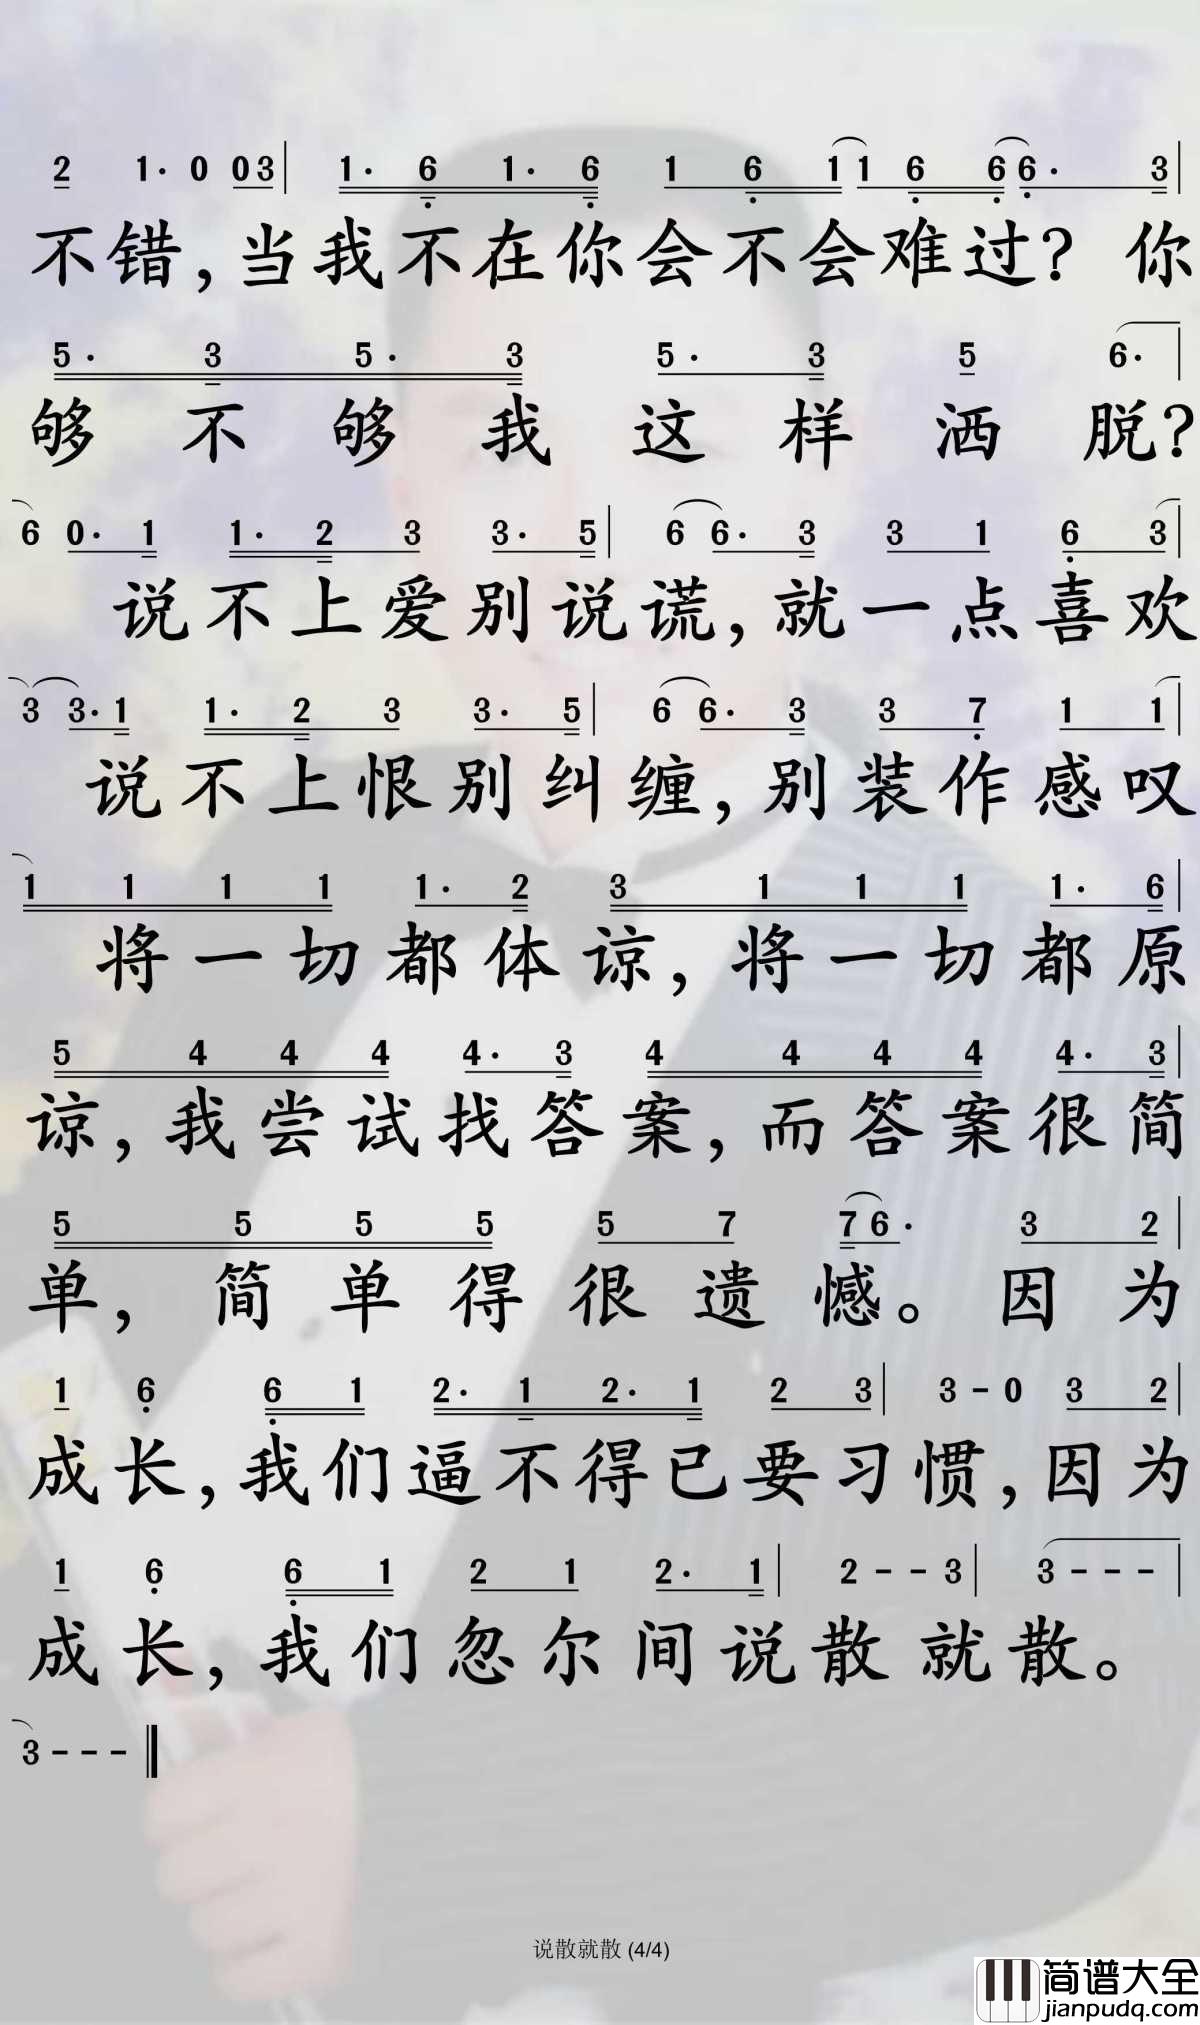 2 1· 0 0 3 | 1· 6 1· 6 1 6 1 1 6 6 6· 3 |
不错,当我不在你会不会难过? 你
5· 3 5· 3 5· 3 5 6· |
够不够我这样洒脱?
6 0· 1 1· 2 3 3· 5 | 6 6· 3 3 1 6 3 |
说不上爱别说谎,就一点喜欢
3 3· 1 1· 2 3 3· 5 | 6 6· 3 3 7 1 1 |
说不上恨别纠缠,别装作感叹
1 1 1 1 1· 2 3 1 1 1 1· 6 |
将一切都体谅,将一切都原
5 4 4 4 4· 3 4 4 4 4 4· 3 |
谅,我尝试找答案,而答案很简
5 5 5 5 5 7 7 6· 3 2 |
单,简单得很遗憾。因为
1 6 6 1 2· 1 2· 1 2 3 | 3 - 0 3 2 |
成长,我们逼不得已要习惯,因为
1 6 6 1 2 1 2· 1 | 2 - - 3 | 3 - - - |
成长,我们忽尔间说散就散。
3 - - - ‖
说散就散 (4/4)
简谱大全
jianpudq.com